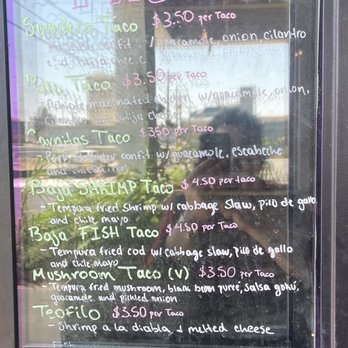 Suadero Taco $3.50 per Taco
confit w/ guacamole, onion, cilantro
Pollo Taco $3.50 per Taco
w/ guacamole, onion,
Carnitas Taco $3.50 per Taco
confit w/ guacamole, escabeche
Baja SHRIMP Taco $4.50 per Taco
- Tempura fried shrimp w/ cabbage slaw, pico de gallo
and chile mayo
Baja FISH Taco $4.50 per Taco
- Tempura fried cod w/ cabbage slaw, pico de gallo
and chile mayo
Mushroom Taco (V) $3.50 per Taco
- Tempura fried mushroom, black bean purré, salsa
guacamole and pickled onion
TEOFILO $3.50 per Taco
- Shrimp a la diabla, + melted cheese